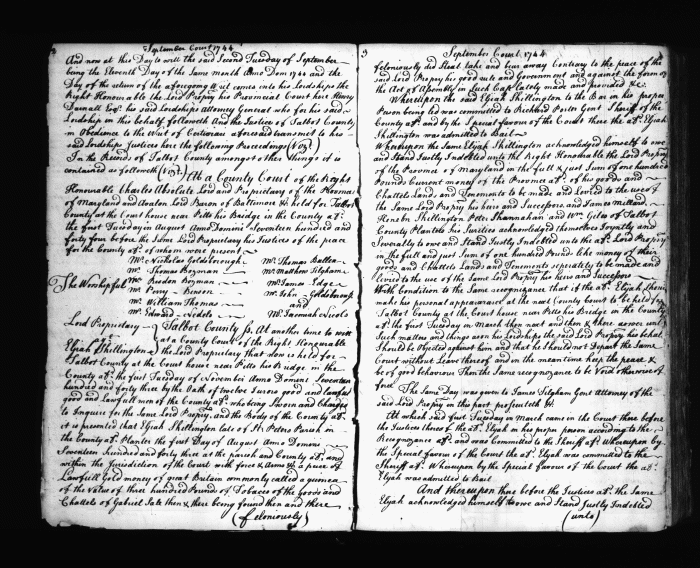 September Court 1744
And now at this Day to witt the said Second Tuesday of September
being the Eleventh Day of the Same Month Anno Dom 1744 and the
Day of the return of the aforegoing Writ comes into his Lordships the
Right Honourable the Lord Propry his Provincial Court here Henry
Darnall Esqr his said Lordships Attorney General who for his said
Lordship in this behalf followeth And the Justices of Talbot County
in Obedience to the Writ of Certiorari aforesaid transmit to his
said Lordships Justices here the following Proceedings (Vizt)
In the Records of Talbot County amongst other things it is
contained as followeth (Vizt)
At a County Court of the Right
Honourable Charles Absolute Lord and Proprietary of the Provinces
of Maryland and Avalon Lord Baron of Baltimore &c held for Talbot
County at the Court house near Pitts his Bridge in the County afd.
the first Tuesday in August Anno Domini Seventeen hundred and
forty four before the Same Lord Proprietary his Justices of the peace
for the County afd. of whom were present
Mr. Nicholas Goldsborough Mr. Thomas Bullen
Mr. Thomas Bozman Mr. Matthew Tilghman
The Worshipfull Mr. Risdon Bozman Mr. James Edge
Mr. Perry Benson Mr. John Goldsborough
Mr. William Thomas and
Mr. Edward Nedels Mr. Jeremiah Nicols
Lord Proprietary Talbot County ss. At another time to witt
at a County Court of the Right Honourable
Elijah Shillington the Lord Proprietary that now is held for
Talbot County at the Court house near Pitts his Bridge in the
County afd. the first Tuesday of November Anno Domini Seventeen
hundred and forty three by the Oath of twelve Jurors good and lawful
good and Lawfull men of the County afd. who being Sworn and Charged
to Enquire for the Same Lord Propry. and the Body of the County afd.
it is presented that Elijah Shillington late of St. Peters Parish in
the County afd. Planter the first Day of August Anno Domini
Seventeen hundred and forty three at the parish and County afd. and
within the Jurisdiction of the Court with force & Arms &c a piece of
Lawfull Gold money of great Britain commonly called a guinea
of the Value of three hundred Pounds of Tobacco of the Goods and
Chattels of Gabriel Sale then & there being found then and there
(feloniously)
September Court 1744
feloniously did Steal take and bear away Contrary to the peace of the
said Lord Propry his good rule and Government and against the form of
the Act of Assembly in Such Case lately made and provided &c
Whereupon the said Elijah Shillington to the Bar in his proper
Person being led was committed to Richard Porter Gent Sheriff of the
County afd. and by the Special favour of the Court there the afd. Elijah
Shillington was admitted to Bail
Whereupon the Same Elijah Shillington acknowledged himself to owe
and Stand Justly Indebted unto the Right Honourable the Lord Propry
of the Province of Maryland in the full & just Sum of one hundred
Pounds Current money of the Province afd. of his goods and
Chattels Lands and Tenements to be made and Levied to the use of
the Same Lord Propry his heirs and Successors and James Millard
Henebn Shillington Peter Shannahan and Wm. Giles of Talbot
County Planters his Surties acknowledged themselves Joyntly and
Severally to owe and Stand Justly Indebted unto the afd. Lord Propry
in the full and just Sum of one hundred Pounds like money of their
goods and Chattels Lands and Tenements seperately to be made and
levied to the use of the Same Lord Propry his heirs and Successors
With Condition to the Same recognizance that if the afd. Elijah Should
make his personal appearance at the next County Court to be held for
Talbot County at the Court house near Pitts his Bridge in the County
afd. the first Tuesday in March then next and then & there answer unto
Such matters and things as on his Lordships the said Lord Propry his behalf
Should be Objected against him and that he should not Depart the Same
Court without Leave thereof and in the mean time keep the peace &
be of good behaviour Then the Same recognizance to be Void otherwise of
force
The Same Day was given to James Tilghman Gent Attorney of the
said Lord Propry in this part prosecuteth &c.
At which said first Tuesday in March came in the Court there before
the Justices there of the afd. Elijah in his proper person according to the
Recognizance afd. and was Committed to the Sheriff afd. Whereupon by
the Special favour of the Court the afd. Elijah was Committed to the
Sheriff afd. Whereupon by the Special favour of the Court the afd.
Elijah was admitted to Bail
And thereupon there before the Justices afd. the Same
Elijah acknowledged himself to owe and Stand Justly Indebted
(unto)